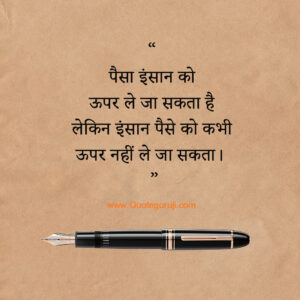 “
पैसा इंसान को
ऊपर ले जा सकता है
लेकिन इंसान पैसे को कभी
ऊपर नहीं ले जा सकता।
”
www.Quoteguruji.com